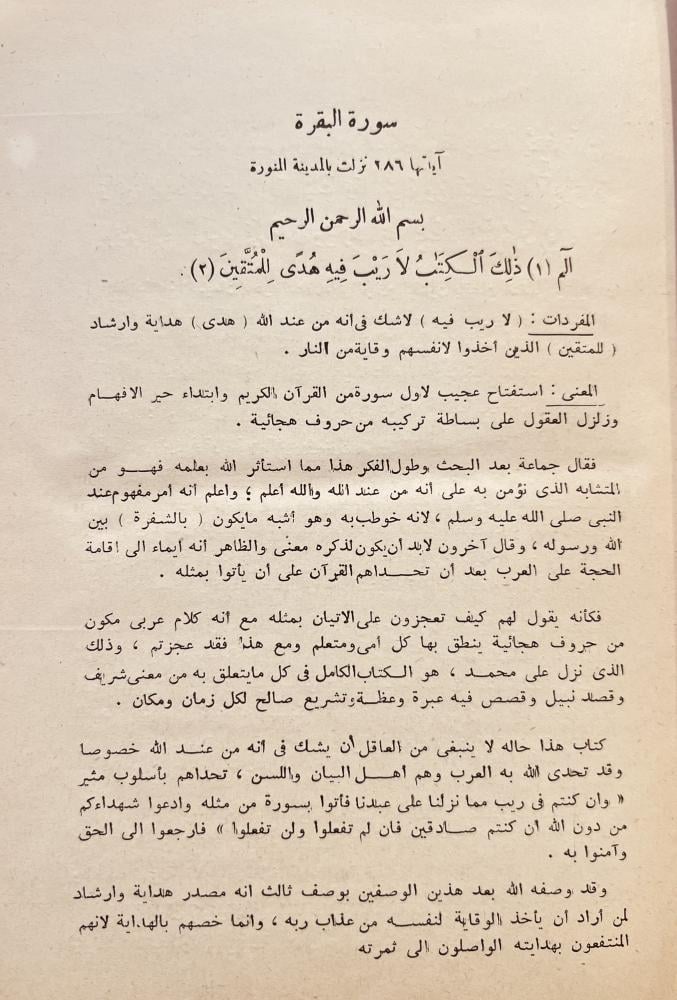 سورة البقرة
آياتها ٢٨٦ نزلت بالمدينة المنورة
بسم الله الرحمن الرحيم
الٓمٓ (١) ذَٰلِكَ ٱلْكِتَٰبُ لَا رَيْبَ فِيهِ هُدًى لِلْمُتَّقِينَ (٢) .
المفردات : ( لا ريب فيه ) لاشك فى أنه من عند الله ( هدى ) هداية وارشاد
( للمتقين ) الذين أخذوا لانفسهم وقاية من النار .
المعنى : استفتاح عجيب لاول سورة من القرآن الكريم وابتداء حير الافهام
وزلزل العقول على بساطة تركيبه من حروف هجائية .
فقال جماعة بعد البحث وطول الفكر هذا مما استأثر الله بعلمه فهو من
المتشابه الذى نؤمن به على أنه من عند الله والله أعلم ؛ واعلم أنه أمر مفهوم عند
النبى صلى الله عليه وسلم ، لانه خوطب به وهو أشبه مايكون ( بالشفرة ) بين
الله ورسوله ، وقال آخرون لابد أن يكون لذكره معنى والظاهر أنه ايماء الى اقامة
الحجة على العرب بعد أن تحداهم القرآن على أن يأتوا بمثله .
فكأنه يقول لهم كيف تعجزون على الاتيان بمثله مع أنه كلام عربى مكون
من حروف هجائية ينطق بها كل أمى ومتعلم ومع هذا فقد عجزتم ، وذلك
الذى نزل على محمد ، هو الكتاب الكامل فى كل مايتعلق به من معنى شريف
وقصد نبيل وقصص فيه عبرة وعظة وتشريع صالح لكل زمان ومكان .
كتاب هذا حاله لا ينبغى من العاقل أن يشك فى أنه من عند الله خصوصا
وقد تحدى الله به العرب وهم أهل البيان واللسن ، تحداهم بأسلوب مثير
« وان كنتم فى ريب مما نزلنا على عبدنا فأتوا بسورة من مثله وادعوا شهداءكم
من دون الله ان كنتم صادقين فان لم تفعلوا ولن تفعلوا » فارجعوا الى الحق
وآمنوا به .
وقد وصفه الله بعد هذين الوصفين بوصف ثالث انه مصدر هداية وارشاد
لمن أراد أن يأخذ الوقاية لنفسه من عذاب ربه ، وانما خصهم بالهداية لانهم
المنتفعون بهدايته الواصلون الى ثمرته